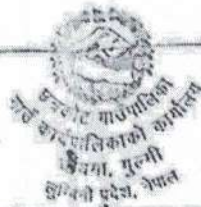 धुर्कोट गाउँपालिका
गाउँ कार्यपालिकाको कार्यालय
गुल्मी
लुम्बिनी प्रदेश, नेपाल